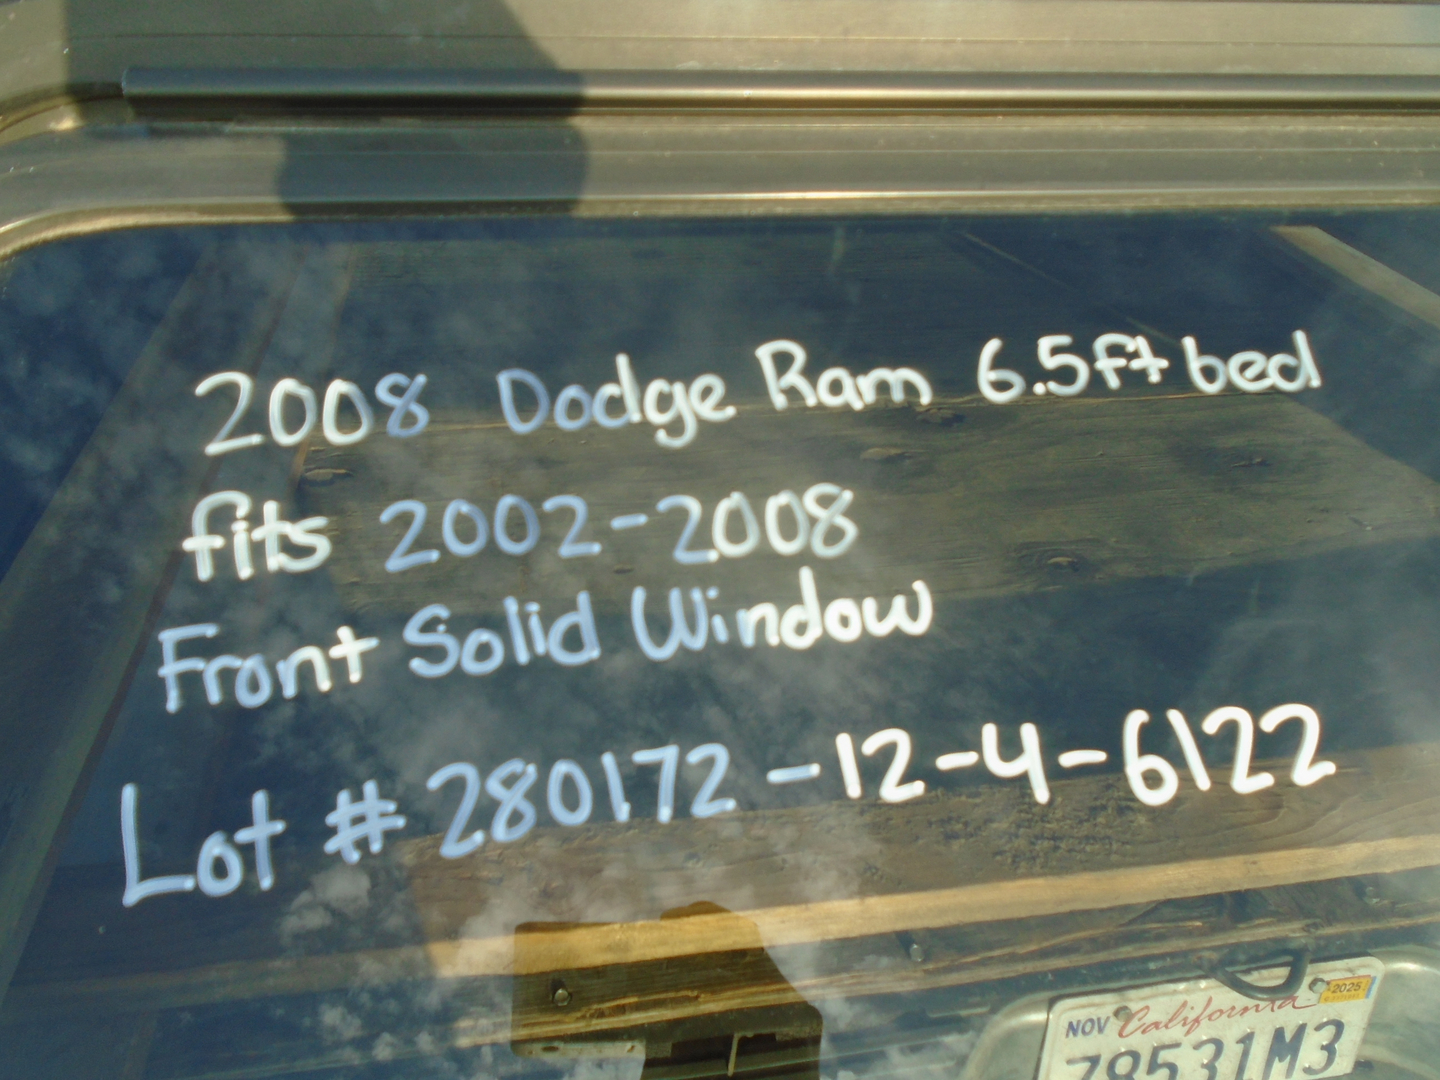 2008 Dodge Ram 6.5ft bed
fits 2002-2008
Front Solid Window
Lot # 280172-12-4-6122
NOV California 2025
78531M3